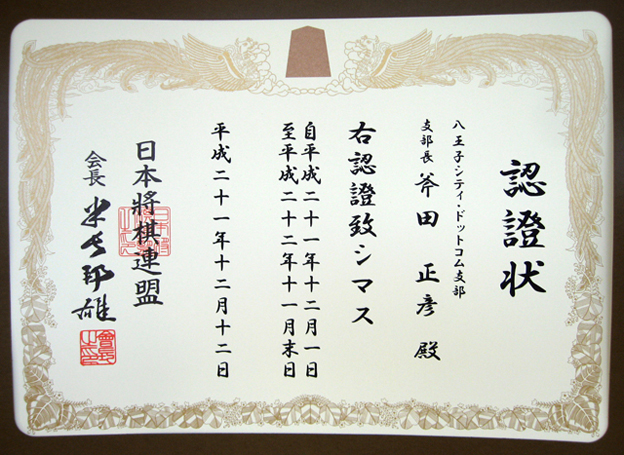 認證状
八王子シティ・ドットコム支部
支部長 斧田 正彦 殿
右認證致シマス
自平成二十一年十二月一日
至平成二十二年十一月末日
平成二十一年十二月十二日
日本將棋連盟
会長 米長邦雄